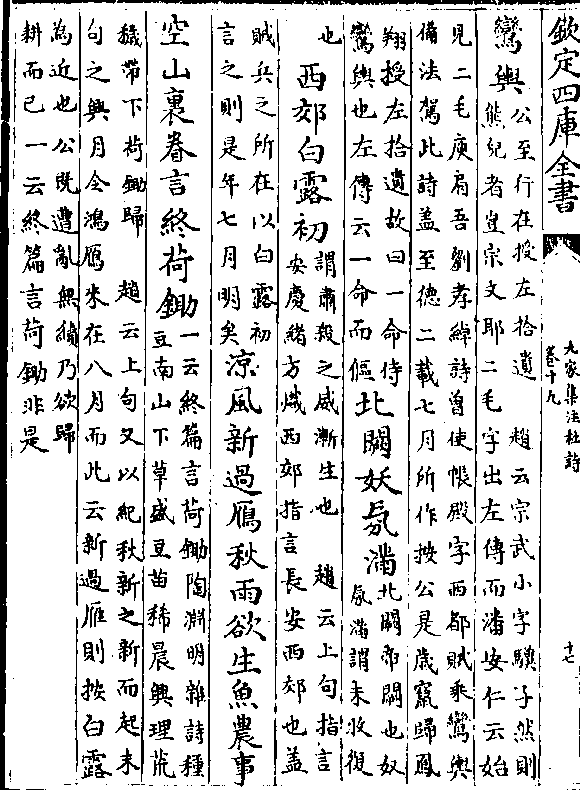 欽定四庫全書
九家集注杜詩
卷十九
十七
鸞輿公至行在授左拾遺　趙云宗武小字驥子然則
熊兒者豈宗文耶二毛字出左傳而潘安仁云始
見二毛庾肩吾劉孝綽詩曾使帳殿字西都賦乘鸞輿
備法駕此詩蓋至德二載七月所作按公是歲竄歸鳳
翔授左拾遺故曰一命侍
鸞輿也左傳云一命而傴北闕妖氛滿北闕帝闕也奴
氛滿謂未收復
也　西郊白露初謂肅殺之威漸生也　趙云上句指言
安慶緒方熾西郊指言長安西郊也蓋
賊兵之所在以白露初
言之則是年七月明矣涼風新過鴈秋雨欲生魚農事
空山裏眷言終荷鋤一云終篇言荷鋤陶淵明雜詩種
豆南山下草盛豆苗稀晨興理荒
穢帶下荷鋤歸　趙云上句又以紀秋新之新而起末
句之興月令鴻鴈來在八月而此云新過雁則按白露
為近也公既遭亂無
乃欲歸
耕而已一云終篇言荷鋤非是